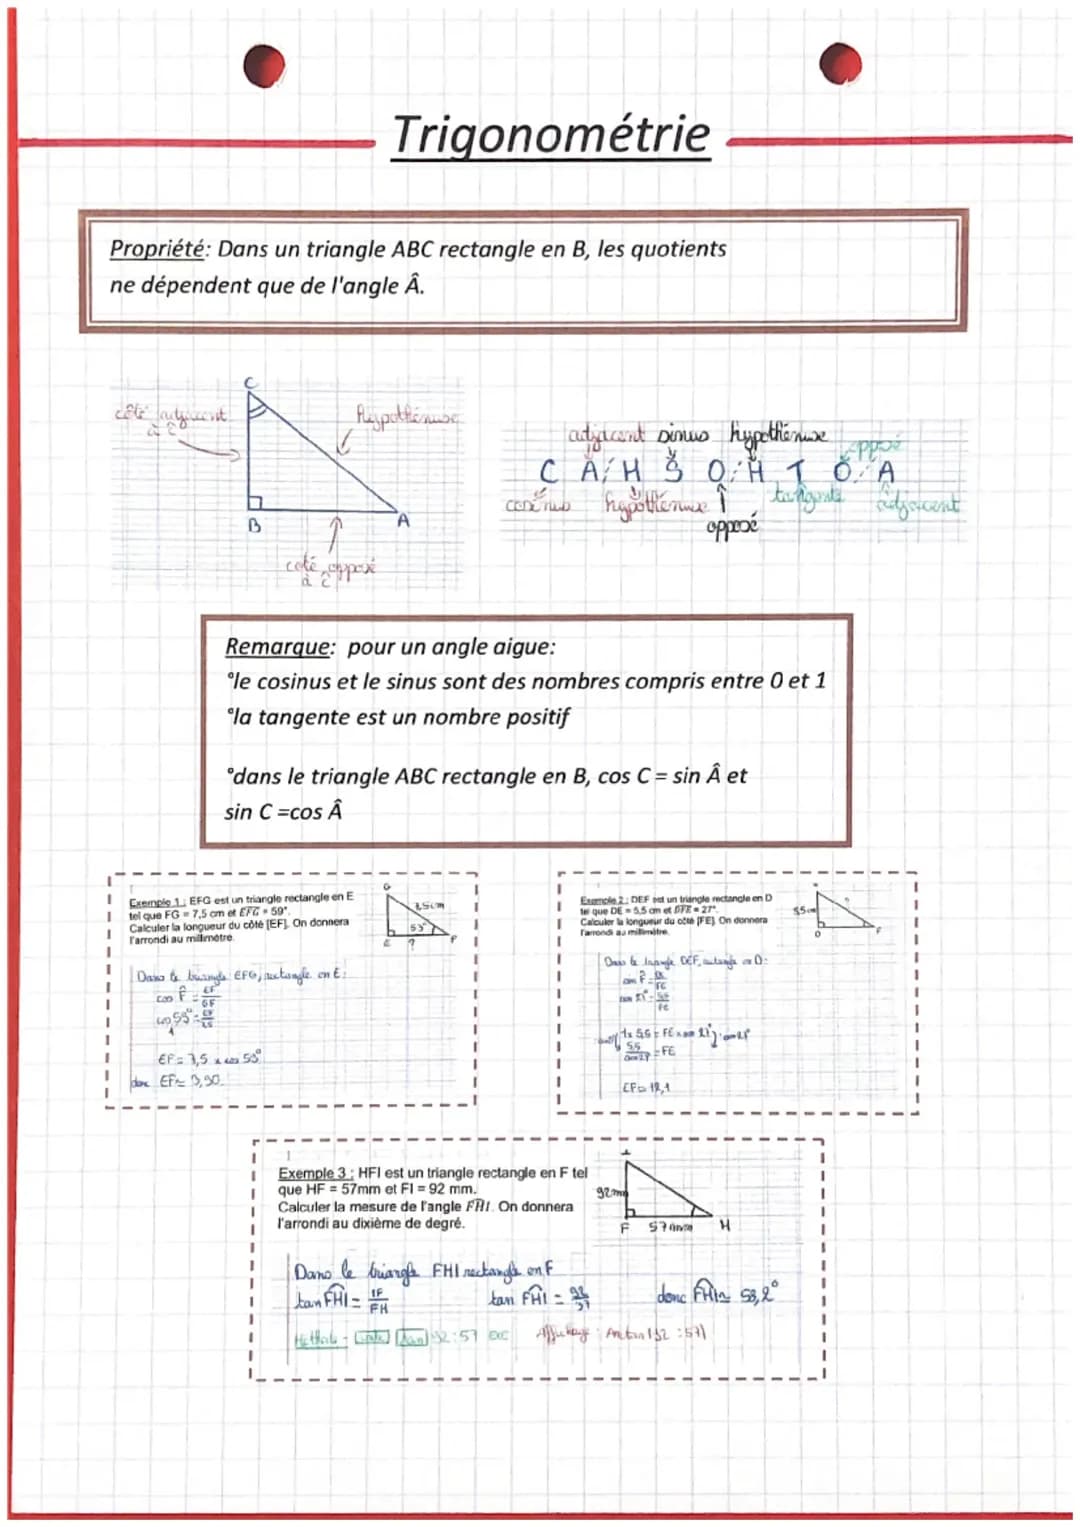 Trigonométrie
Propriété: Dans un triangle ABC rectangle en B, les quotients
ne dépendent que de l'angle Â.
C
côté adjacent
à ĉ
Hypothénuse
B
A
coté opposé
à ĉ
adjacent sinus hypothénuse opposé
C A/H S O/H T O/A
cosinus hypothénuse opposé tangente adjacent
Remarque: pour un angle aigue:
°le cosinus et le sinus sont des nombres compris entre 0 et 1
°la tangente est un nombre positif
°dans le triangle ABC rectangle en B, cos C = sin Â et
sin C =cos Â
Exemple 1 : EFG est un triangle rectangle en E
tel que FG = 7,5 cm et EFG = 59°.
Calculer la longueur du côté [EF]. On donnera
l'arrondi au millimètre.
G
E ? F
Dans le triangle EFG, rectangle en E:
cos F̂ = EF
GF
EF = 7,5 x cos 59°
donc EF≃ 3,90
Exemple 2 : DEF est un triangle rectangle en D
tel que DE = 5,5 cm et DFE = 27°.
Calculer la longueur du côté [FE]. On donnera
l'arrondi au millimètre.
5,5cm
D
F
Dans le triangle DEF, rectangle en D:
= FE
EF≃ 12,1
Exemple 3 : HFI est un triangle rectangle en F tel
que HF = 57mm et FI = 92 mm.
Calculer la mesure de l'angle FHI. On donnera
l'arrondi au dixième de degré.
I
92mm
F 57mm H
Dans le triangle FHI rectangle en F
tan FHI = IF
FH
tan FHI = 92
57
donc FHI≃ 58,2°
Affichage : Arctan(92 : 57)